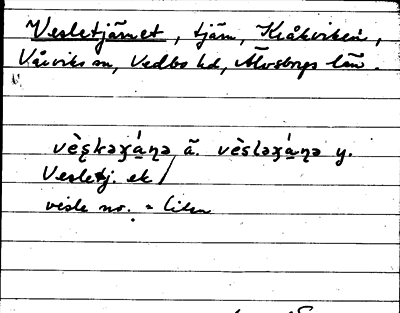 Vesletjärnet, tjärn, Kråkviken,
Vårviks sn, Vedbo hd, Älvsborgs län.
vèʂkəɣá̱ɳə ä. vèsləɣá̱ɳə y.
Vesletj. ek /
vesle no. = liten